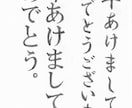 あけまして
でとうござい
あけまして
でとう。